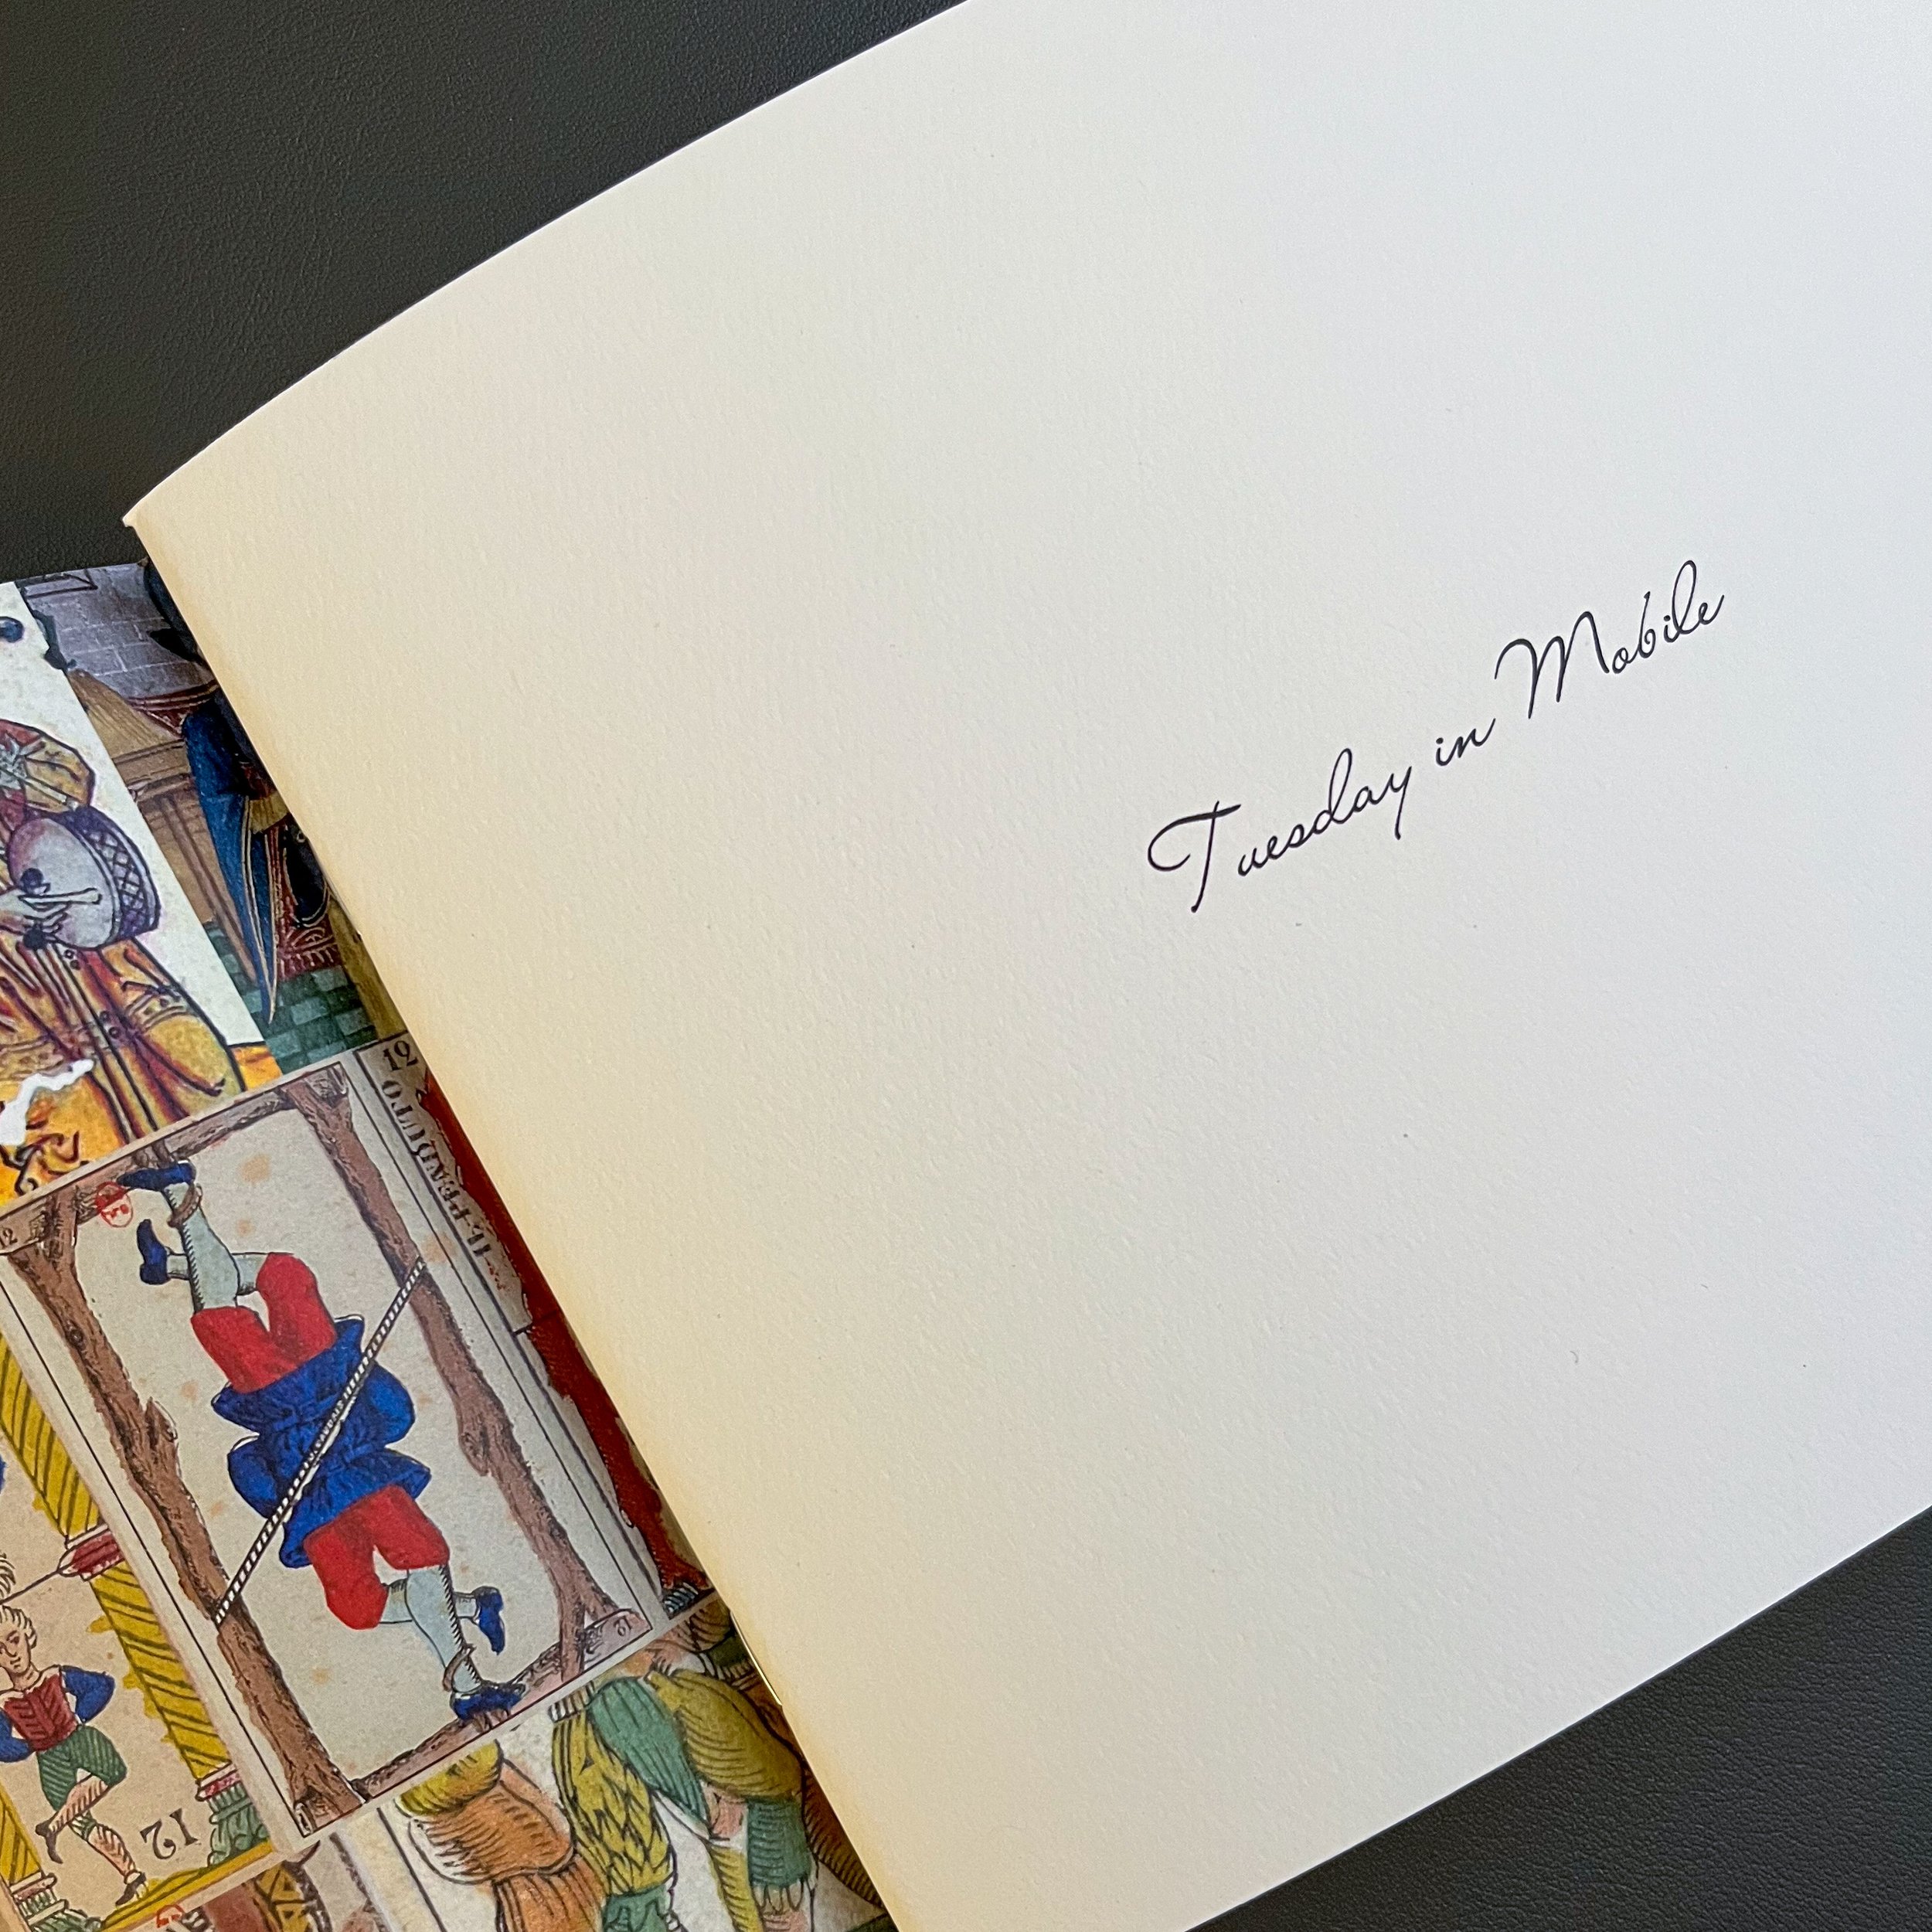 Tuesday in Mobile
12
IL PENDUTO
12
12
12